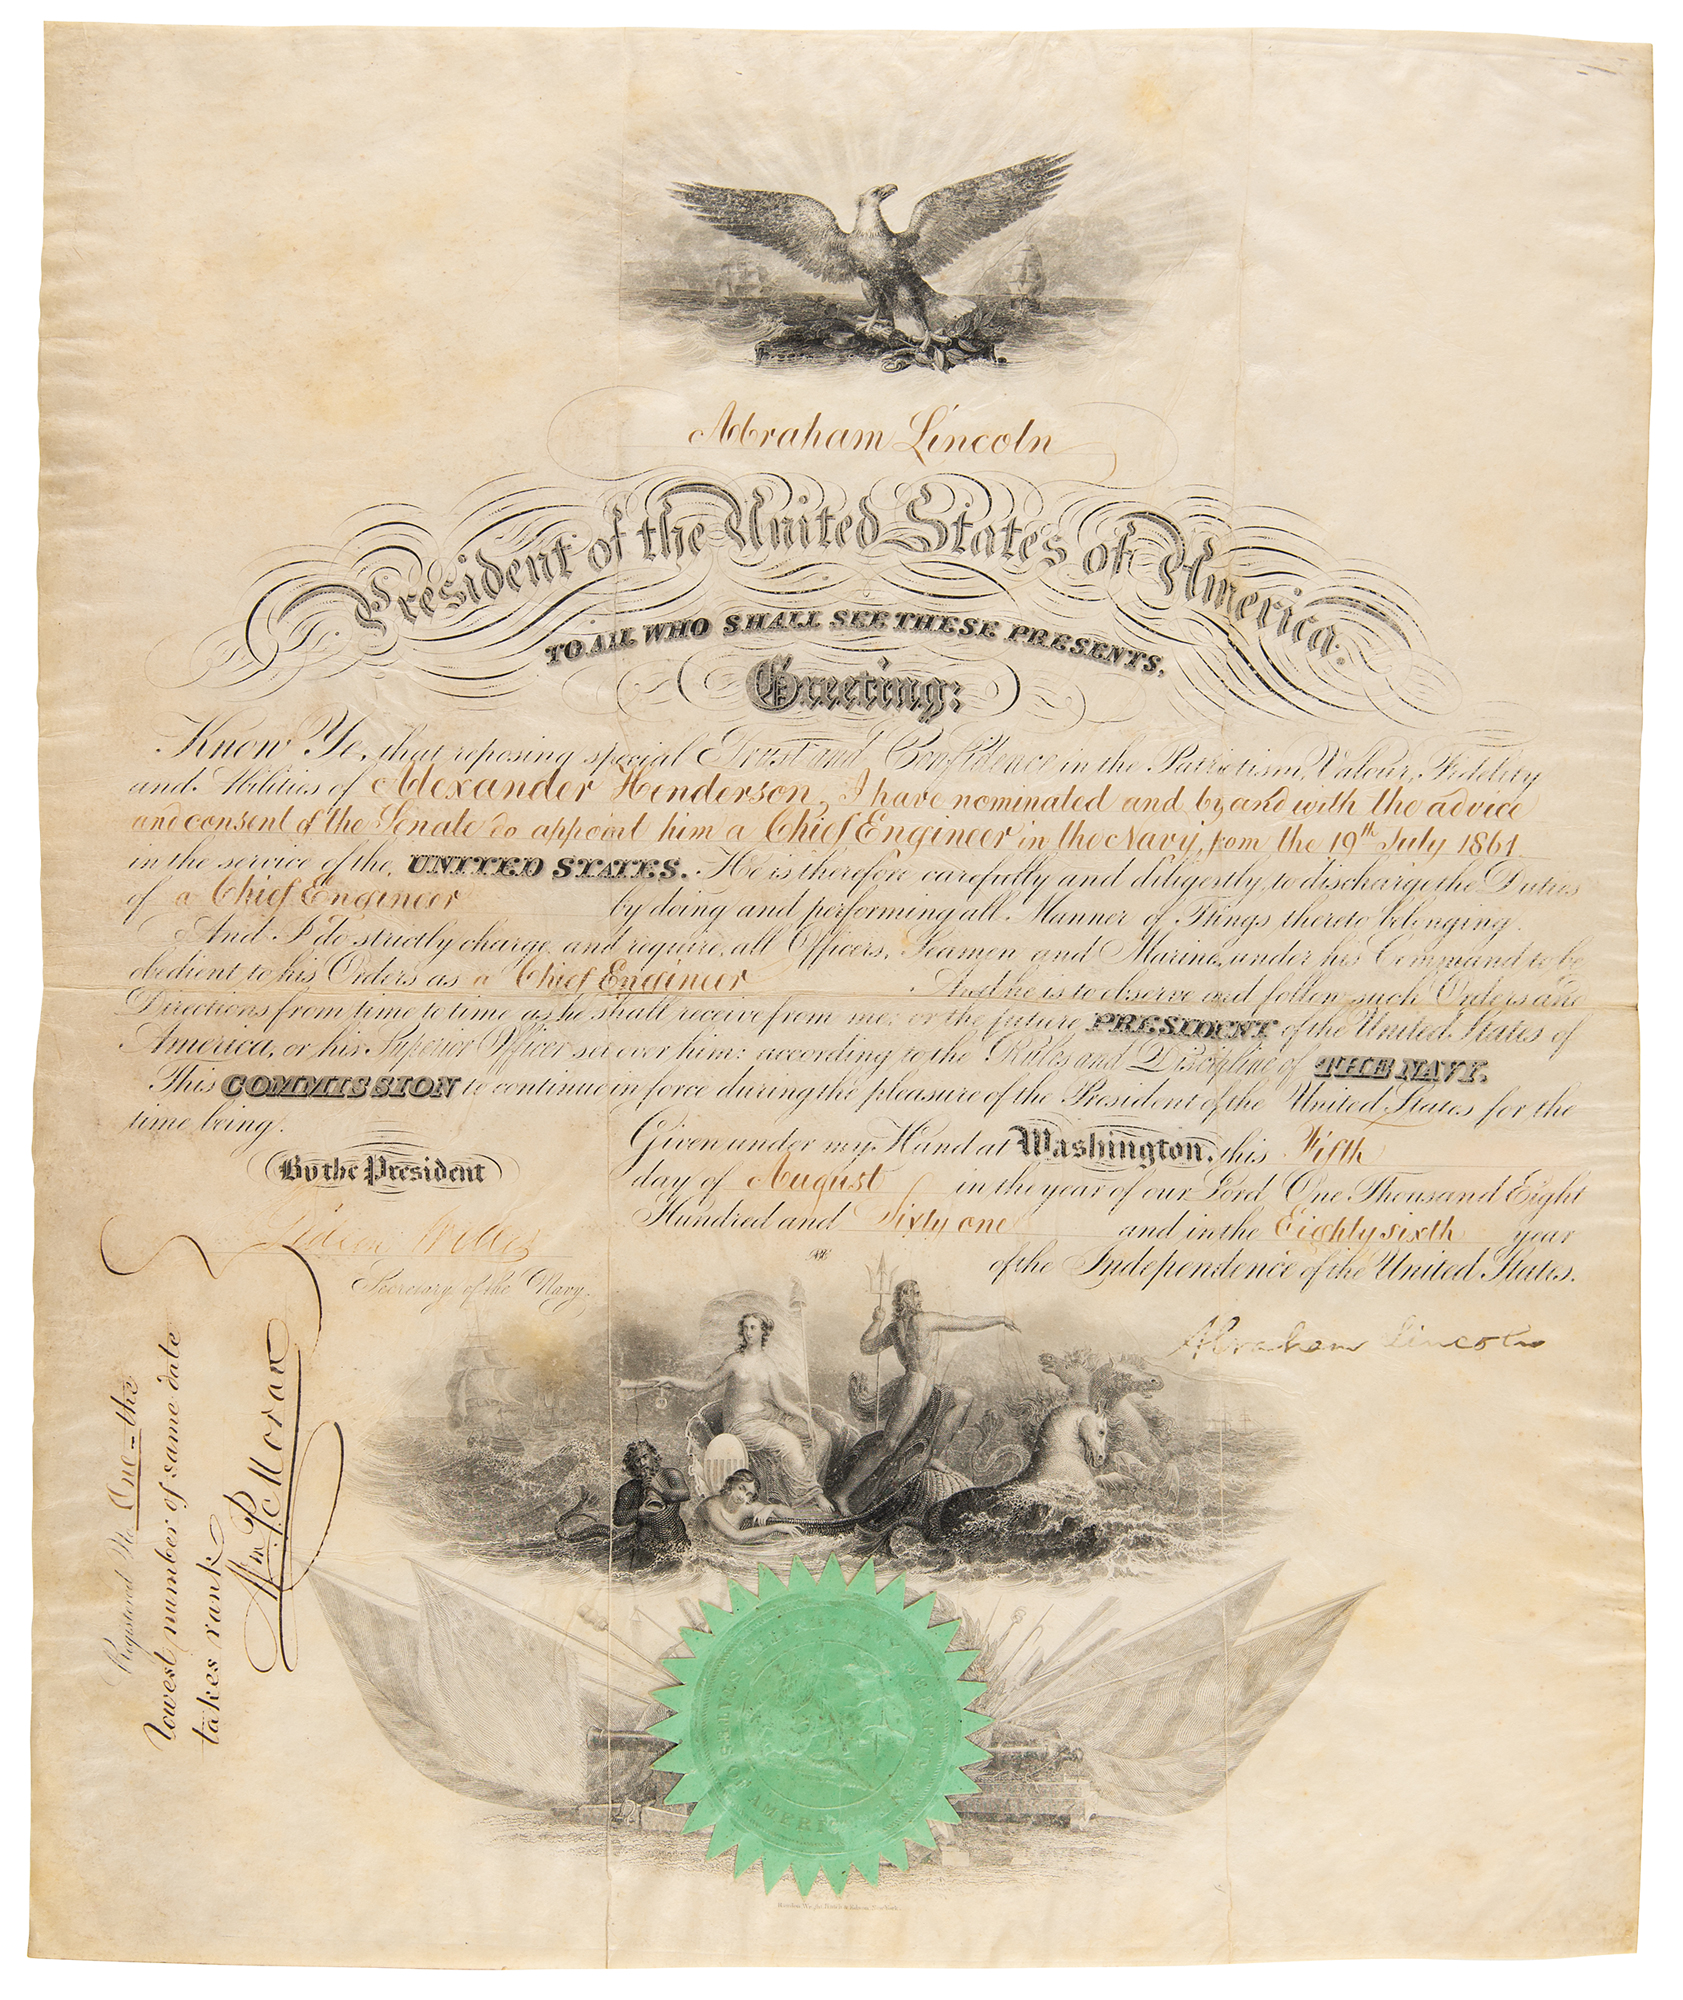 Abraham Lincoln
President of the United States of America.
TO ALL WHO SHALL SEE THESE PRESENTS,
Greeting:
Know Ye, that reposing special Trust and Confidence in the Patriotism, Valour, Fidelity
and Abilities of Alexander Henderson, I have nominated and by and with the advice
and consent of the Senate do appoint him a Chief Engineer in the Navy, from the 19th July 1861
in the service of the, UNITED STATES. He is therefore carefully and diligently, to discharge the Duties
of a Chief Engineer by doing and performing all Manner of Things thereto belonging.
And I do strictly charge, and require, all Officers, Seamen and Marines, under his Command to be
obedient to his Orders as a Chief Engineer. And he is to observe and follow such Orders and
Directions from time to time as he shall receive from me: or the future PRESIDENT of the United States of
America, or his Superior Officer set over him: according to the Rules and Discipline of THE NAVY.
This COMMISSION to continue in force during the pleasure of the President of the United States for the
time being.
Given under my Hand at Washington, this Fifth
day of August in the year of our Lord One Thousand Eight
Hundred and Sixty one and in the Eighty sixth year
of the Independence of the United States.
By the President
Gideon Welles
Secretary of the Navy.
Abraham Lincoln
Registered No One - the
lowest number of same date
takes rank
Wm P. Moran